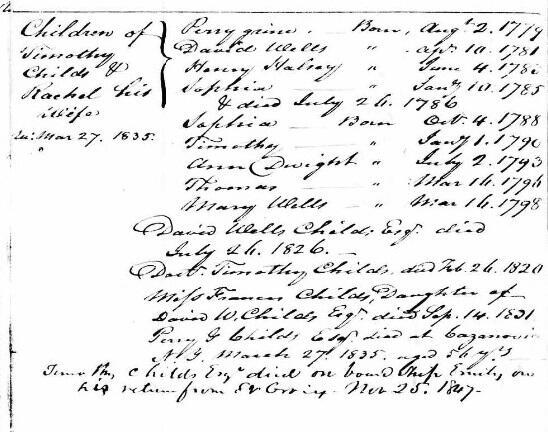 Children of
Timothy
Childs &
Rachel his
Wife
Mar 27. 1835.
Perrygrine. — Born, Augt 2. 1779
David Wells " Apr. 10. 1781
Henry Halsey " June 4. 178
Sophia — " Jany 10. 1785
& died July 26. 1786
Sophia — Born Oct. 4. 1788
Timothy — " Jany 1. 1790
Ann Dwight " July 2. 1793
Thomas — " Mar 16. 1796
Mary Wells — " Mar 16. 1798
David Wells Childs Esqr. died
July 26. 1826. —
Doctr. Timothy Childs. died Feb. 26. 1820
Miss Frances Childs, Daughter of
David W. Childs Esqr. died Sep. 14. 1831
Perry G Childs Esqr. died at Cazanovia
N.Y. March 27th. 1835. aged 56 ys
Timothy Childs Esqr died on board Ship Emily, on
his return from Nov 25. 1847.